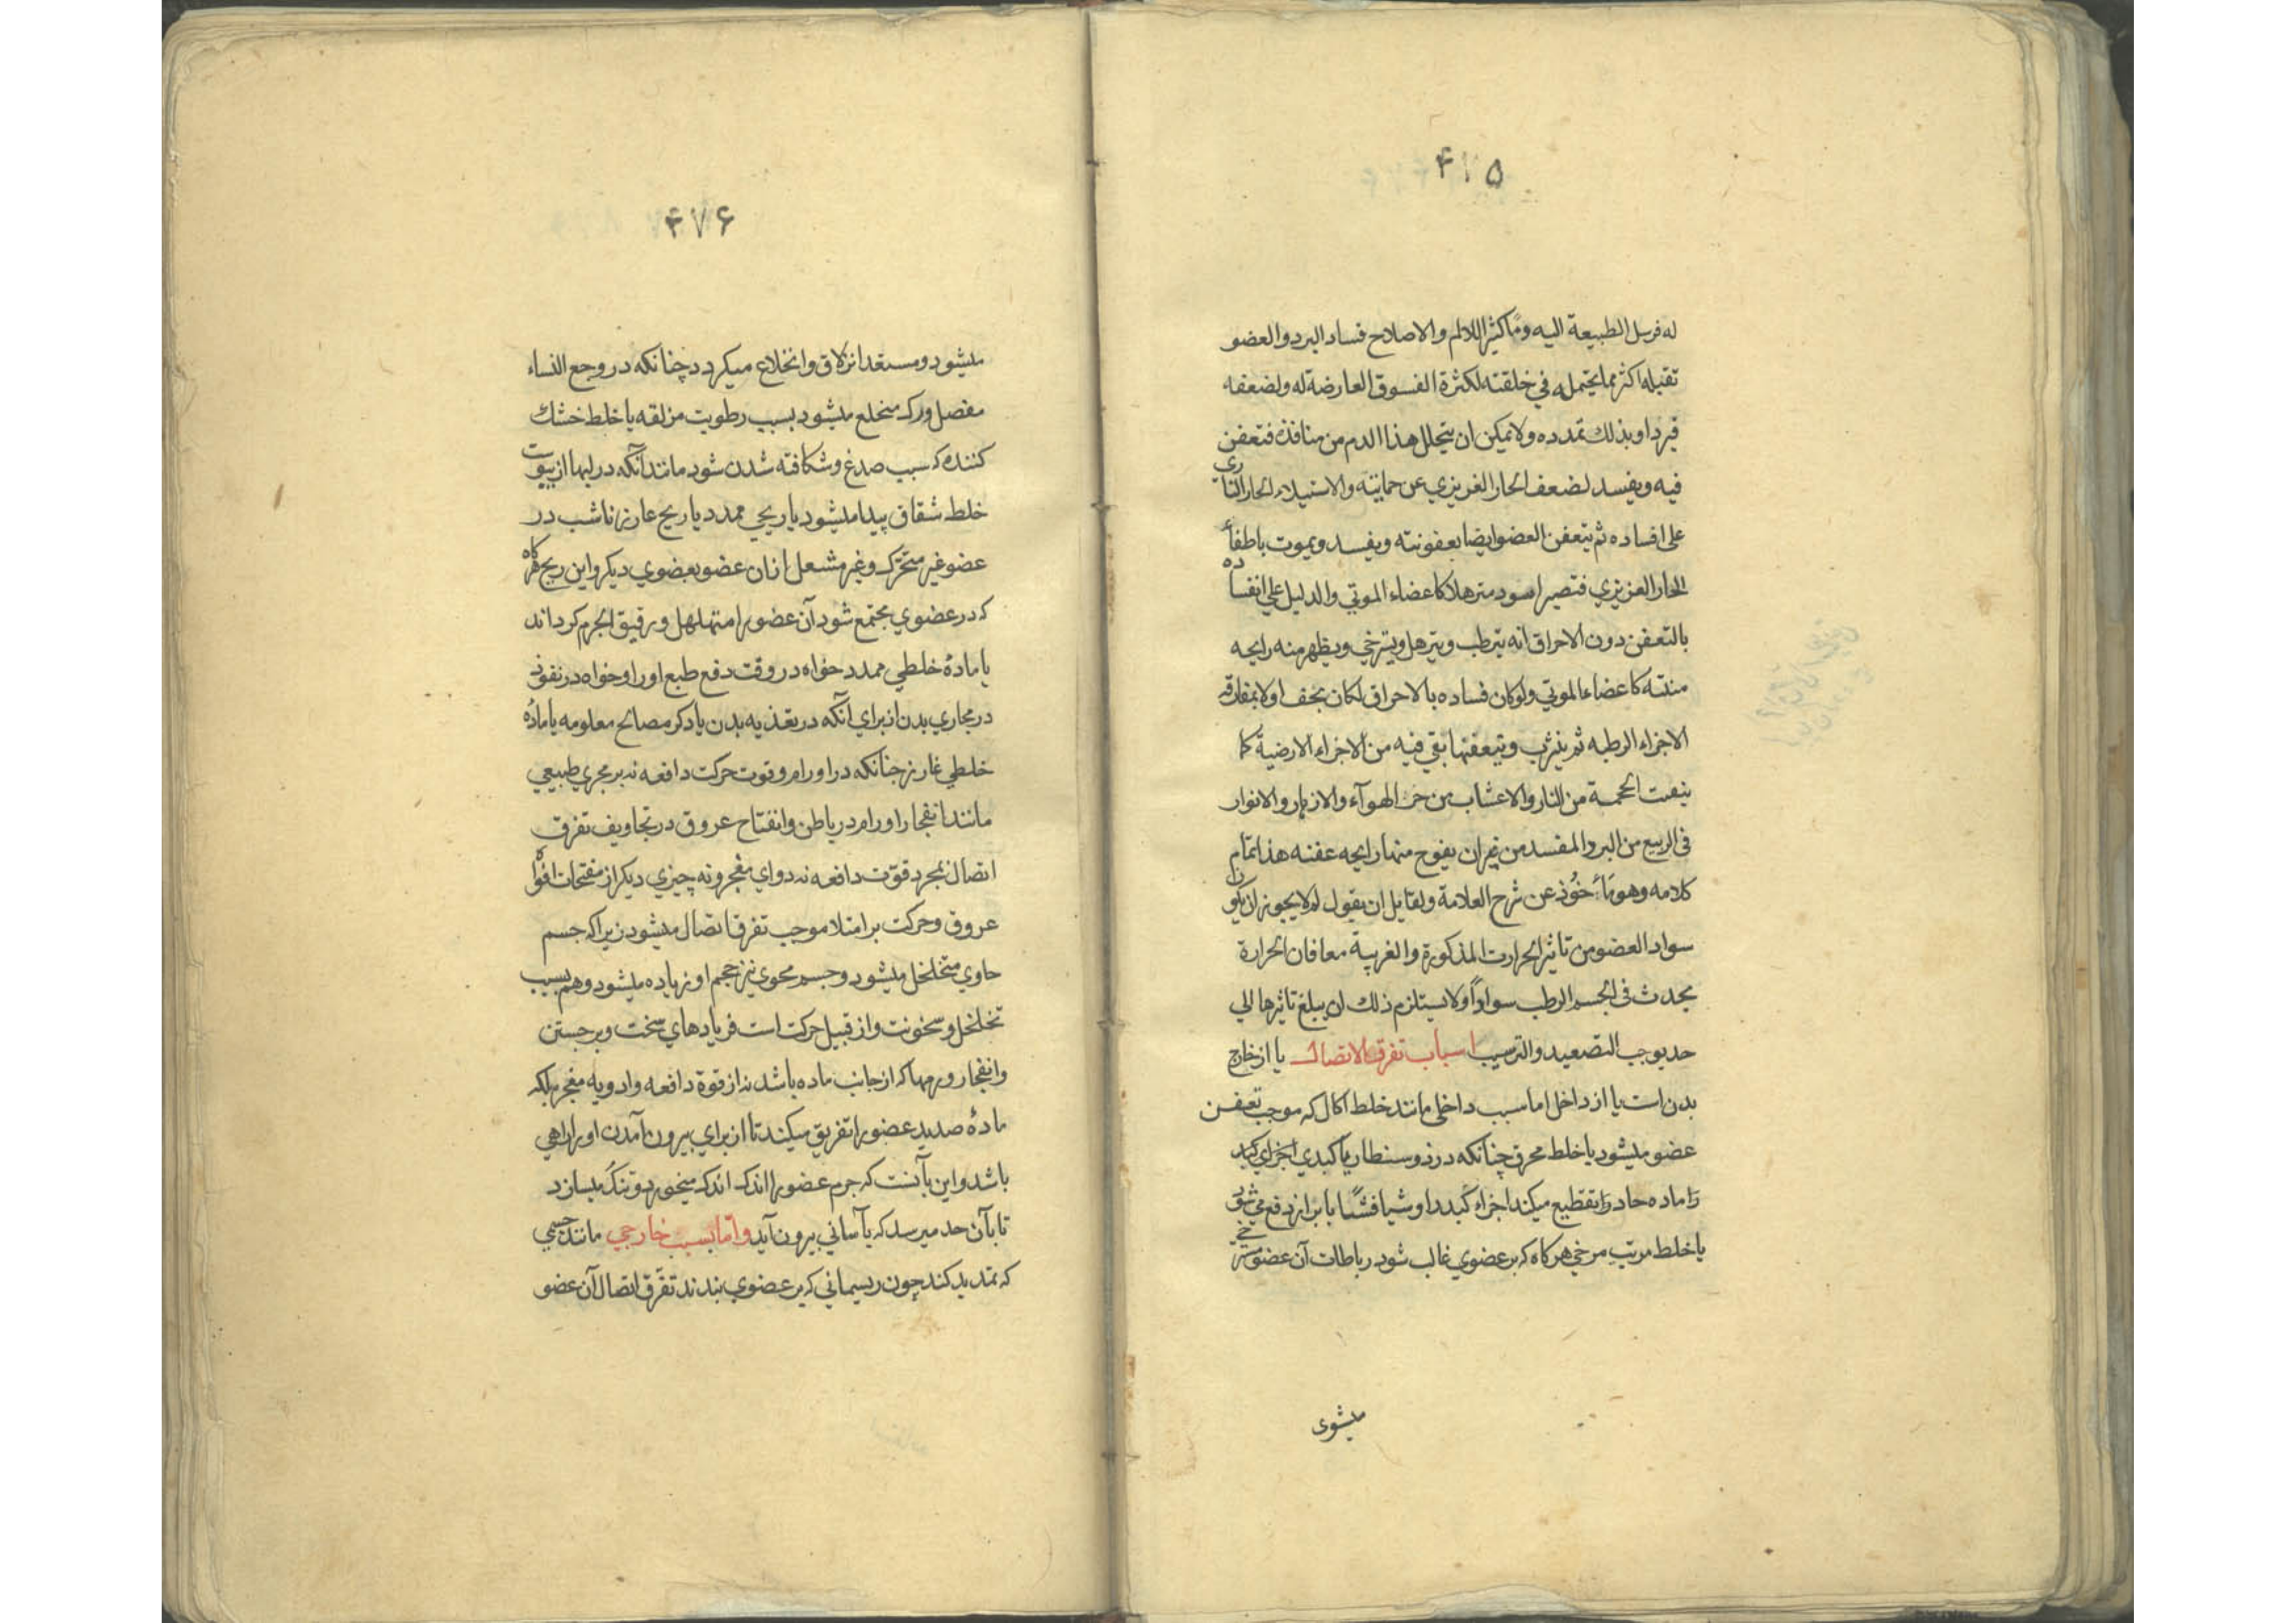 ۴۷۵
له فرسل الطبیعة الیه وما کثیر اللالم والاصلاح فساد البرد والعضو
تقبله اکثر مما یحتمله فی خلقته لکثرة الفسوق العارضة له ولضعفه
فیرداو بذلك تمدده ولا یمکن ان یتحلل هذا الدم من منافذه فتعفن
فیه ویفسد لضعف الحار الغریزي عن حمایته والاستیلاء الحار الناری
علی افساده ثم یتعفن العضو ایضا بعفونته ویفسد ویموت باطفأ
الحار الغریزي فتصیر اسود مترهلا کاعضاء الموتي والدلیل علي انفساده
بالتعفن دون الاحراق انه یترطب ویترهل ویسترخي ویظهر منه رایحه
منتنه کاعضاء الموتي ولو کان فساده بالاحراق لکان یجف اولا بمفارقه
الاجزاء الرطبه ثم ینثرب ویتعفنها بقي فیه من الاجزاء الارضیة کما
ینعت الحممة من النار والاعشاب من حر الهوآء والازهار والانوار
فی الربیع من البرد المفسد من غیران یفوح منها رایحه عفنه هذا تمام
کلامه وهو مأخوذ عن شرح العلامة ولقایل ان یقول لم لا یجوز ان یکون
سواد العضو من تاثیر الحرارت المذکورة والغریبة معا فان الحرارة
یحدث فی الجسم الرطب سواداً ولا یستلزم ذلك ان یبلغ تاثیرها الي
حد یوجب التصعید والترسیب اسباب تفرق الاتصال یا از خارج
بدن است یا از داخل اما سبب داخلی مانند خلط اکال که موجب تعفن
عضو میشود یا خلط محرق چنانکه در ذوسنطاریا کبدي اجزای کبد
را ماده حاد را تقطیع میکند اجزاء کبد دا وشیا فشیًا با براز دفع می شود
یا خلط مرتب مرخي هرکاه که بر عضوي غالب شود رباطات آن عضو مسترخي
میشوی
۴۷۶
میشود ومستعد انزلاق وانخلاع میکردد چنانکه در وجع النساء
مفصل ورک منخلع میشود بسبب رطوبت مزلقه یا خلط خشك
کننده که سبب صدغ وشکافته شدن شود مانند آنکه در لبها از یبوست
خلط شقاق پیدا میشود یا ریحي ممدد یا ریح غارز ناشب در
عضو غیر متحرک وغیر مشعل ازان عضو بعضوي دیکر واین ریح هرکاه
که در عضوي مجتمع شود آن عضو را متهلهل ورقیق الجرم کرداند
یا مادۀ خلطي ممدد خواه در وقت دفع طبع اورا وخواه در نفوذ
در مجاري بدن از براي آنکه در تغذیه بدن یا دکر مصالح معلومه یا مادۀ
خلطي غارز چنانکه در اورام وقوت حرکت دافعه نه بر مجري طبیعي
مانند انفجار اورام در باطن وانفتاح عروق در تجاویف تفرق
اتصال بمجرد قوّت دافعه نه دواي مفجر ونه چیزي دیکر از مفتحات افواه
عروق وحرکت بر امتلا موجب تفرق اتصال میشود زیرا که جسم
حاوي متخلخل میشود وجسم محوي نیز حجم او زیاده میشود وهم بسبب
تخلخل وسخونت واز قبیل حرکت است فریادهاي سخت وبرجستن
وانفجار ورمها که از جانب ماده باشد نه از قوة دافعه وادویه مفجر بلکه
مادۀ صدید عضو را تفریق میکند تا از براي بیرون آمدن او را راهي
باشد واین بآنست که جرم عضو را اندک اندک میخورد وتنک میسازد
تا بآن حد میرسد که بآساني بیرون آید واما سبب خارجي مانند جسمي
که تمدید کند چون ریسماني که بر عضوي بندند تفرّق اتصال آن عضو